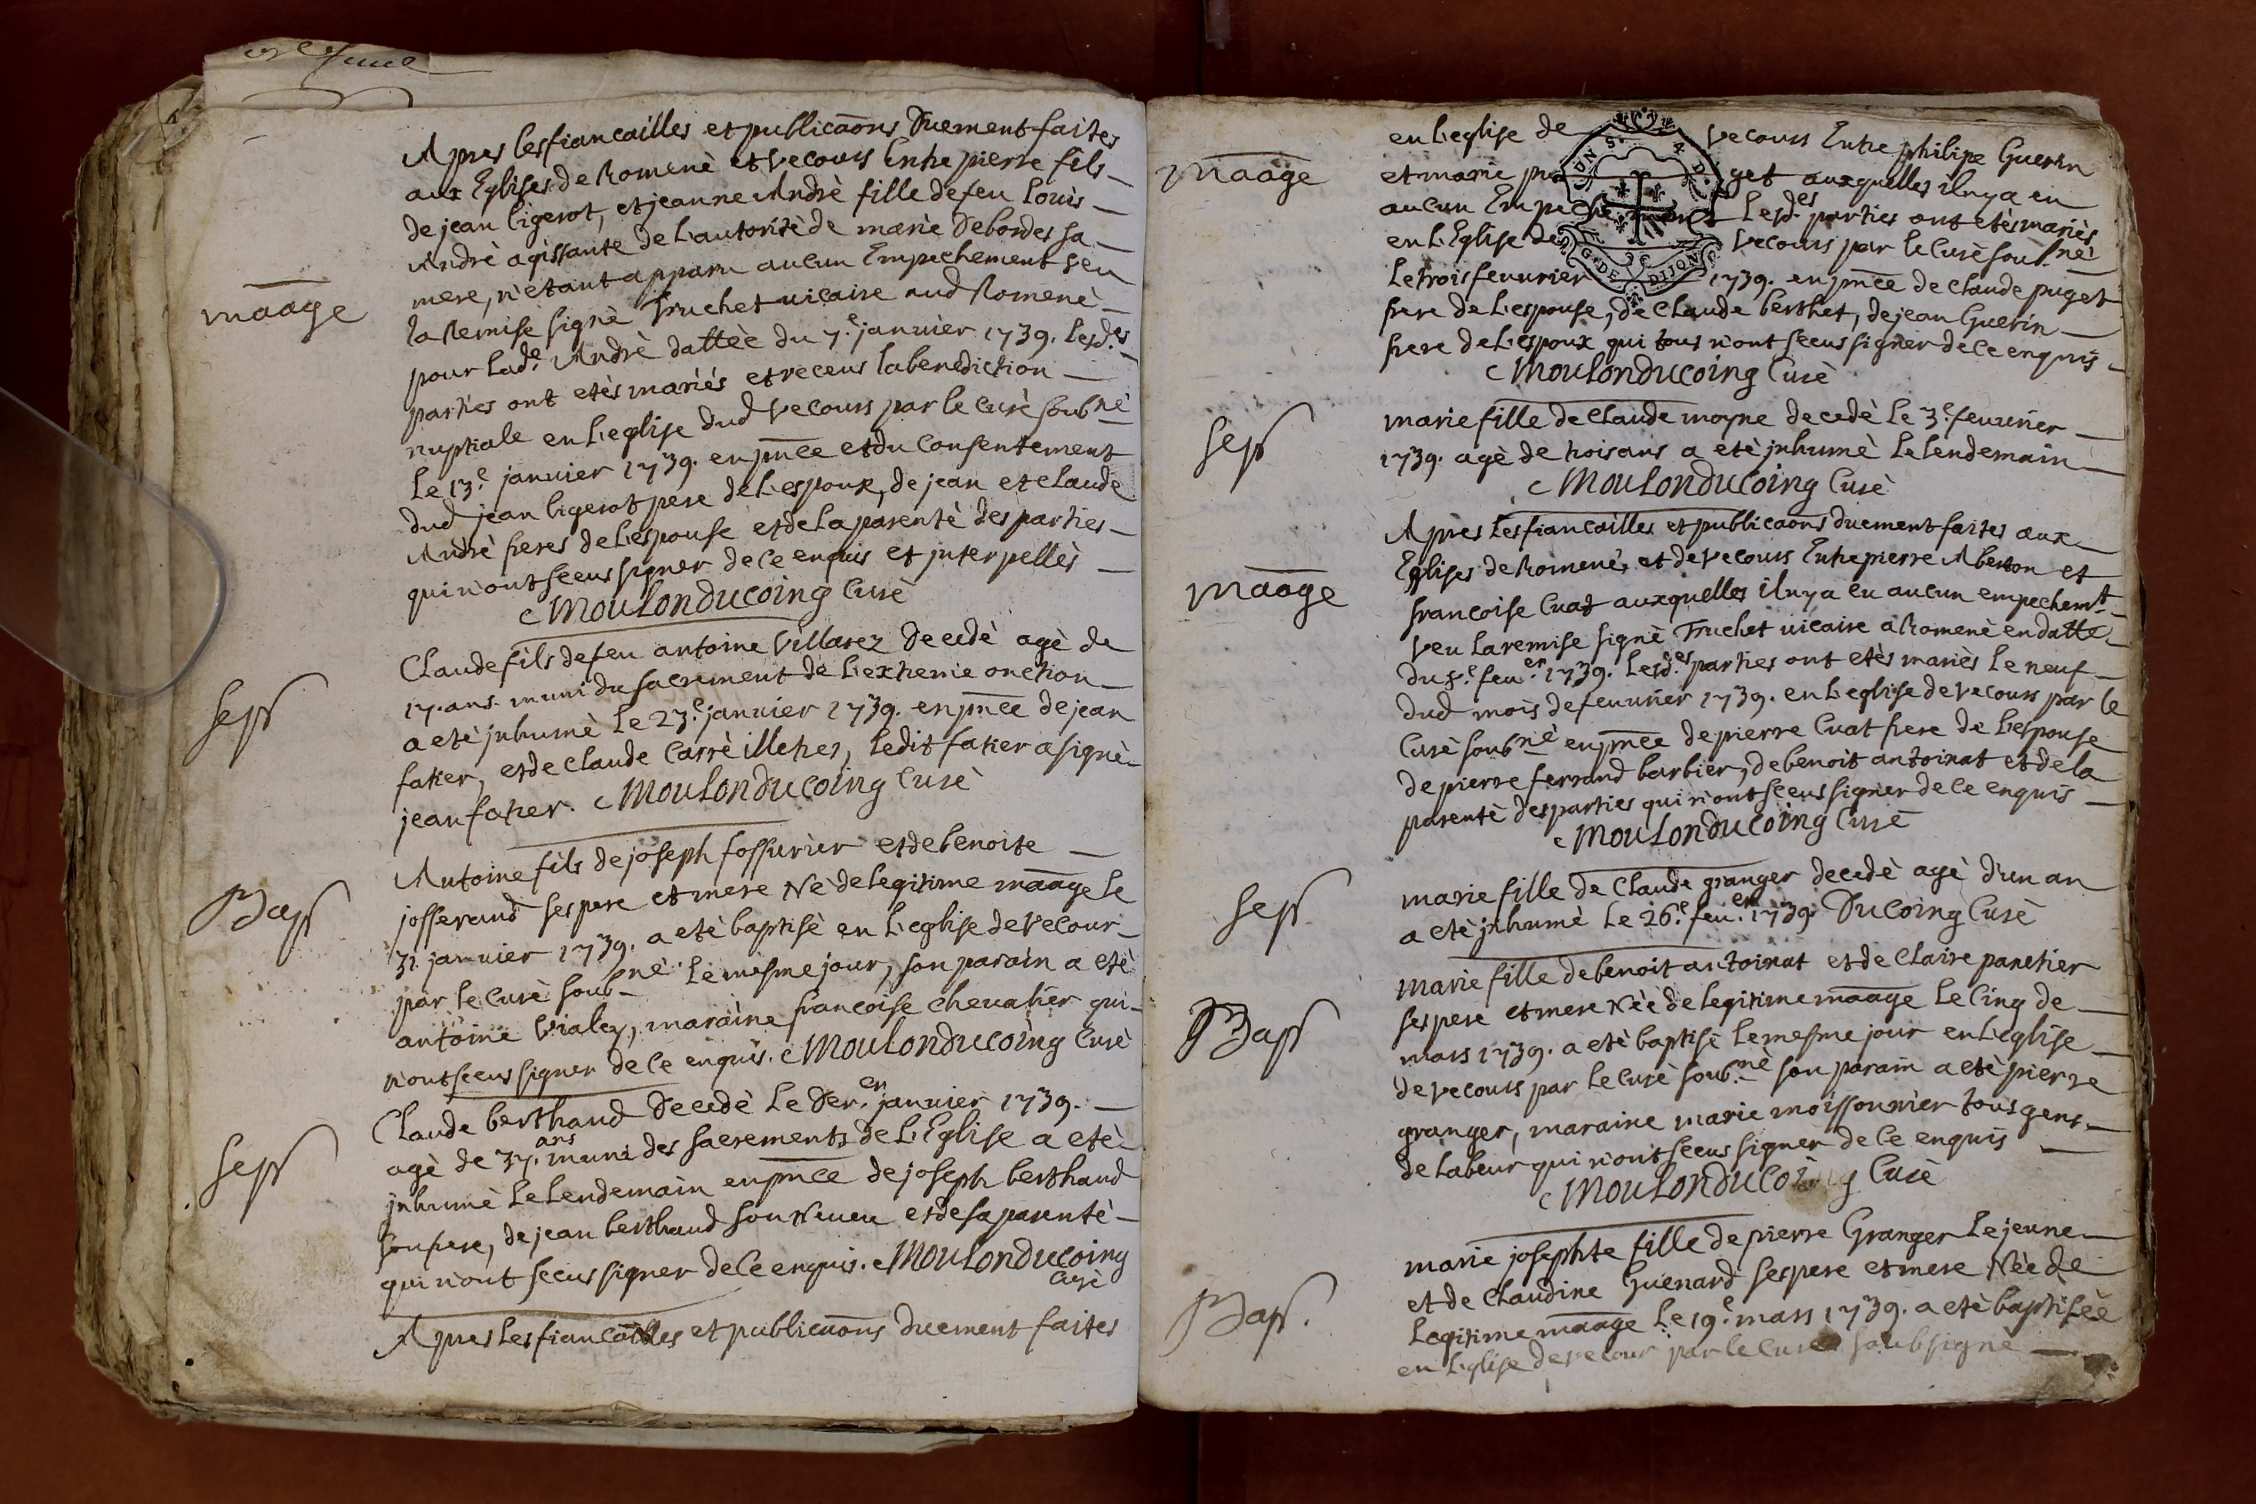 Apres les fiancailles et publicaons Duement faites
aux Eglises de Romenè et Vecours Entre pierre fils
de jean ligerot, et jeanne Andrè fille de feu Louis
Andrè agissante de L'autoritè de marie Debordes sa
mere, n'etant apparu aucun Empechement veu
maage
la Remise signè Truchet vicaire aud Romenè
pour lad.e Andrè dattèe du 7.e janvier 1739. lesd.es
parties ont etès mariès et receus la benediction
nuptiale en L'eglise dud Vecours par le Curè soub.nè
Le 13.e janvier 1739. en pmce et du Consentement
dud jean ligerot pere de L'espoux, de jean et claude
Andrè freres de L'espouse et de la parentè des parties
qui n'ont sceus signer de ce enquis et interpellès
Moulonducoing Curè
Claude fils de feu antoine Villarez Decedè agè de
17. ans. muni du sacrement de L'extreme onction
sep
a etè jnhumè le 23.e janvier 1739. en pmce de jean
fatier, et de claude Carrè illetres, ledit fatier a signè
jean fatier. Moulonducoing Curè
Antoine fils de joseph fossurier et de benoite
Bap
josserand ses pere et mere Nè de legitime maage le
31 janvier 1739. a etè baptisè en L'eglise de Vecour
par le Curè soub.nè Le mesme jour, son parain a etè
antoine Vialey, maraine francoise chevalier qui
n'ont sceus signer de ce enquis. Moulonducoing Curè
Claude berthaud Decedè Le der.er janvier 1739.
agè de 37. ans muni des sacrements de L'Eglise a etè
sep
jnhumè Le lendemain en pmce de joseph berthaud
son frere, de jean berthaud son Neveu et de sa parentè
qui n'ont sceus signer de ce enquis. Moulonducoing
Curè
Apres Les fiancailles et publicaons duement faites
en L'eglise de Vecours Entre philipe Guerin
maage
et marie puget auxquelles il ny a eu
aucun Empechement Lesd.es parties ont etès mariès
en L'Eglise de Vecours par le Curè soub.nè
Le trois fevurier 1739. en pmce de claude puget
frere de L'espouse, de Claude berthet, de jean Guerin
frere de L'espoux qui tous n'ont sceus signer de ce enquis
Moulonducoing Curè
UN S.
A D.
G. DE DIJON
marie fille de Claude moyne decedè Le 3.e fevurier
sep
1739. agè de trois ans a etè jnhumè Le lendemain
Moulonducoing Curè
Apres Les fiancailles et publicaons duement faites aux
Eglises de Romenè, et de Vecours Entre pierre Aberton et
maage
francoise Cuat auxquelles il ny a eu aucun empechemt
Veu La remise signè Truchet vicaire a Romenè en datte
du 8.e feu.er 1739. Lesd.es parties ont etès mariès le neuf
dud mois de fevurier 1739. en L'eglise de Vecours par le
Curè soub.nè en pmce de pierre Cuat frere de L'espouse
de pierre ferrand barbier, de benoit antoinat et de la
parentè des parties qui n'ont sceus signer de ce enquis
Moulonducoing Curè
marie fille de Claude granger decedè agè d'un an
sep
a etè jnhumè Le 26.e feu.er 1739. Ducoing Curè
marie fille de benoit antoinat et de Claire panetier
ses pere et mere Nèe de legitime maage Le Cinq de
Bap
mars 1739. a etè baptisè Le mesme jour en L'eglise
de Vecours par Le Curè soub.nè son parain a etè pierre
granger, maraine marie moissonnier tous gens
de Labeur qui n'ont sceus signer de ce enquis
Moulonducoing Curè
marie josephte fille de pierre Granger Le jeune
et de Claudine Guenard ses pere et mere Nèe de
Bap.
Legitime maage Le 19.e mars 1739. a etè baptisèe
en L'eglise de Vecour par le Curè soubsignè